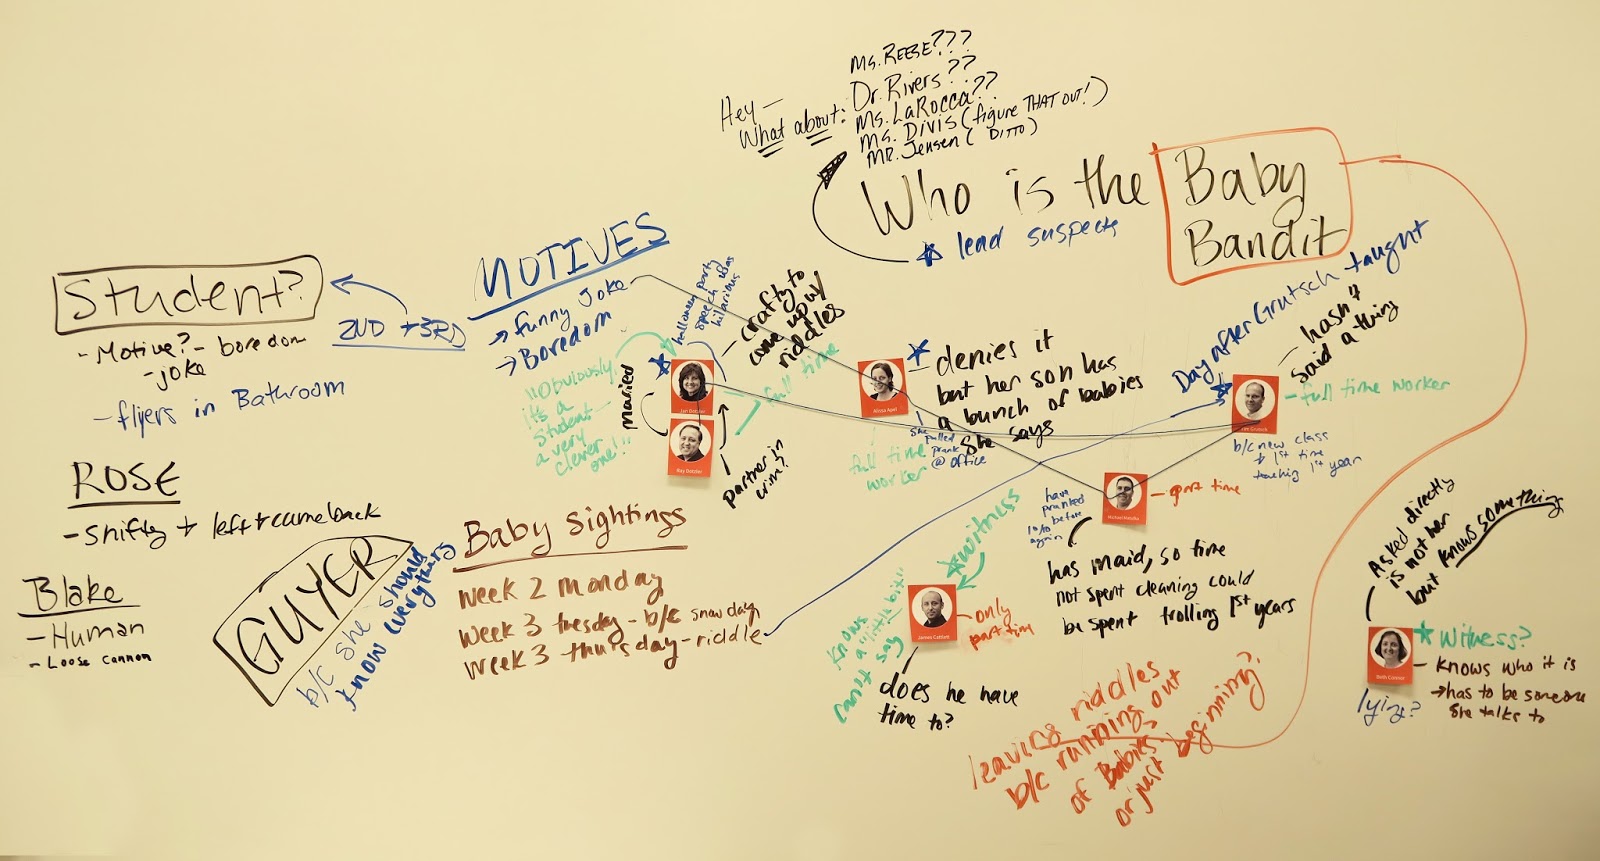 Hey —
What about:
Ms. REESE???
Dr. Rivers??
Ms. LaRocca??
Ms. Divis (figure THAT OUT!)
MR. Jensen (DITTO)
Who is the Baby
Bandit
lead suspects
Student?
2ND + 3RD
- Motive? - boredom
- joke
- flyers in Bathroom
ROSE
- shifty + left + came back
Blake
- Human
- Loose cannon
GUYER
b/c she should
know everything
MOTIVES
→ funny joke
→ Boredom
"Obviously
it's a
student
a very
clever
one!"
married
halloween party
speech was
hilarious
- crafty to
come up w/
riddles
full time
partner in
crime?
Jan Dotzler
Ray Dotzler
Baby Sightings
week 2 monday
week 3 tuesday - b/c snow day
week 3 thursday - riddle
Alissa Apel
- denies it
but her son has
a bunch of babies
she says
she
pulled
prank
@ office
full time
worker
Day after Grutsch taught
- hasn't
said a thing
- full time worker
b/c new class
+ 1st time
teaching 1st year
have
pranked
before
again
- part time
has maid, so time
not spent cleaning could
be spent trolling 1st years
witness
knows
a "little bit"
can't say
- only
part time
does he have
time to?
leaving riddles
b/c running out
of Babies.
or just beginning?
Asked directly
is not her
but knows something
Beth Connor
Witness?
- knows who it is
→ has to be someone
she talks to
lying?